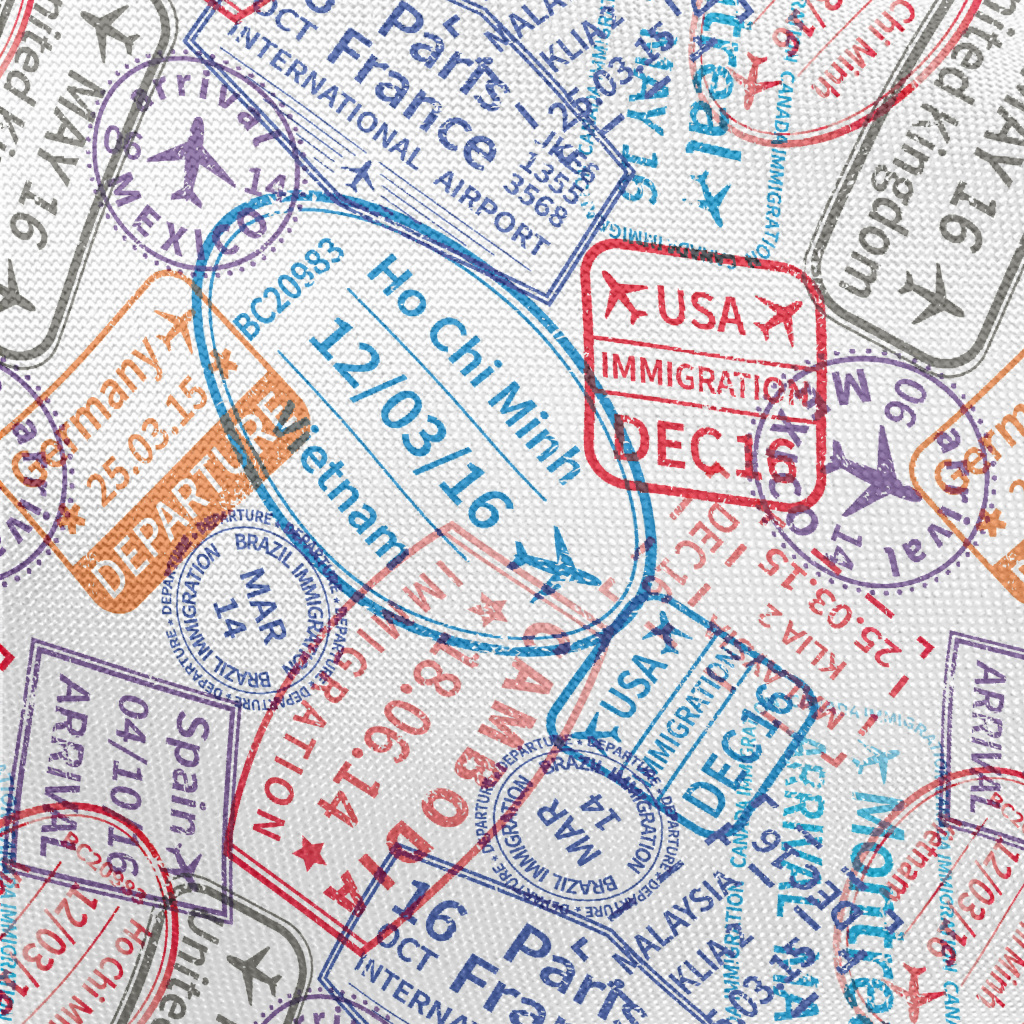 MAY 16
United Kingdom
arrival
06
14
MEXICO
OCT
Paris -
France
INTERNATIONAL AIRPORT
JKES
1355
3568
MALA
KLIA
25.03
MAY 16
treal
CANADA IMMIGRATION
Chi Minh
MAY 16
United Kingdom
Germany
25.03.15
DEPARTURE
BC20983
Ho Chi Minh
12/03/16
Vietnam
USA
IMMIGRATION
DEC 16
arrival
06
14
Mexico
BRAZIL IMMIGRATION
MAR
14
BRAZIL IMMIGRATION
DEPARTURE
Spain
04/10/16
ARRIVAL
CAMBODIA
18.06.14
IMMIGRATION
USA
IMMIGRATION
DEC 16
MALAYSIA
KLIA 2
25.03.15
DEC 16
BRAZIL IMMIGRATION
MAR
14
BRAZIL IMMIGRATION
DEPARTURE
ARRIVAL
Montre
ARRIVAL MA
CANADA IMMIGRATION
BC20983
12/03/1
Ho Chi M
United
16
OCT
Paris
Fra
INTERNA
MALAYSIA
KLIA
03
Vietnam
12/03/16
Minh